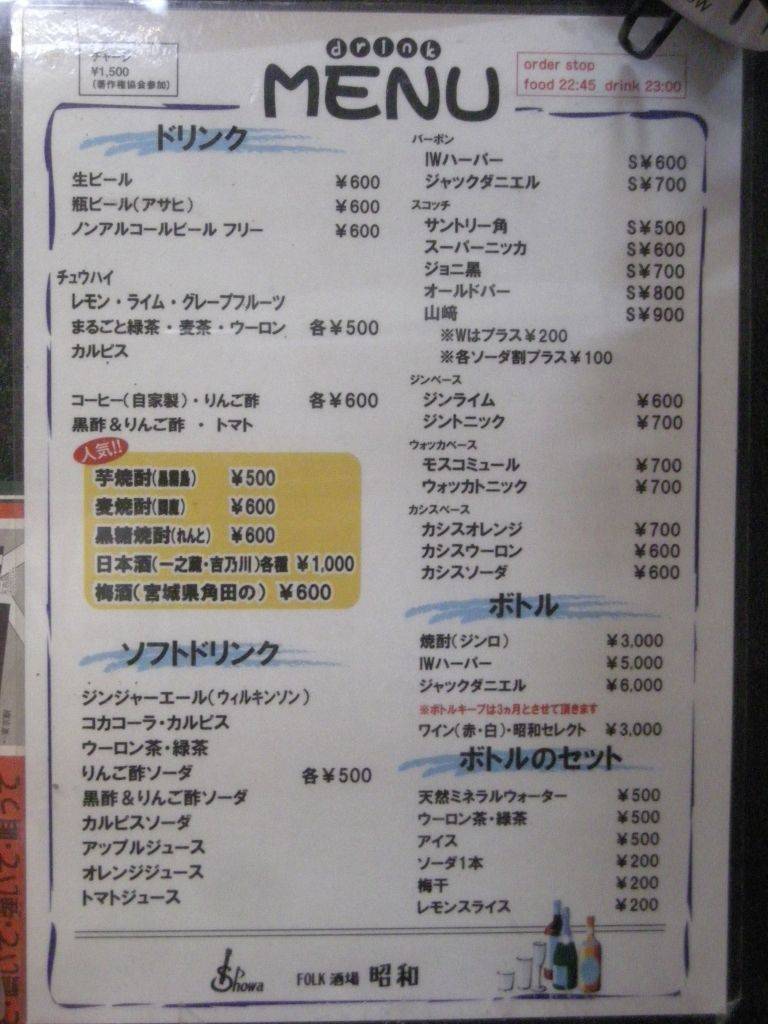 チャージ
¥1,500
(著作権協会参加)
drink
MENU
order stop
food 22:45 drink 23:00
ドリンク
生ビール ¥600
瓶ビール(アサヒ) ¥600
ノンアルコールビール フリー ¥600
チュウハイ
レモン・ライム・グレープフルーツ
まるごと緑茶・麦茶・ウーロン 各¥500
カルピス
コーヒー(自家製)・りんご酢 各¥600
黒酢&りんご酢 ・ トマト
人気!!
芋焼酎(黒霧島) ¥500
麦焼酎 ¥600
黒糖焼酎(れんと) ¥600
日本酒(一之蔵・吉乃川)各種 ¥1,000
梅酒(宮城県角田の) ¥600
ソフトドリンク
ジンジャーエール(ウィルキンソン)
コカコーラ・カルピス
ウーロン茶・緑茶
りんご酢ソーダ 各¥500
黒酢&りんご酢ソーダ
カルピスソーダ
アップルジュース
オレンジジュース
トマトジュース
バーボン
IWハーパー S¥600
ジャックダニエル S¥700
スコッチ
サントリー角 S¥500
スーパーニッカ S¥600
ジョニ黒 S¥700
オールドパー S¥800
山﨑 S¥900
※Wはプラス¥200
※各ソーダ割プラス¥100
ジンベース
ジンライム ¥600
ジントニック ¥700
ウォッカベース
モスコミュール ¥700
ウォッカトニック ¥700
カシスベース
カシスオレンジ ¥700
カシスウーロン ¥600
カシスソーダ ¥600
ボトル
焼酎(ジンロ) ¥3,000
IWハーパー ¥5,000
ジャックダニエル ¥6,000
※ボトルキープは3ヵ月とさせて頂きます
ワイン(赤・白)・昭和セレクト ¥3,000
ボトルのセット
天然ミネラルウォーター ¥500
ウーロン茶・緑茶 ¥500
アイス ¥500
ソーダ1本 ¥200
梅干 ¥200
レモンスライス ¥200
Showa
FOLK 酒場 昭和